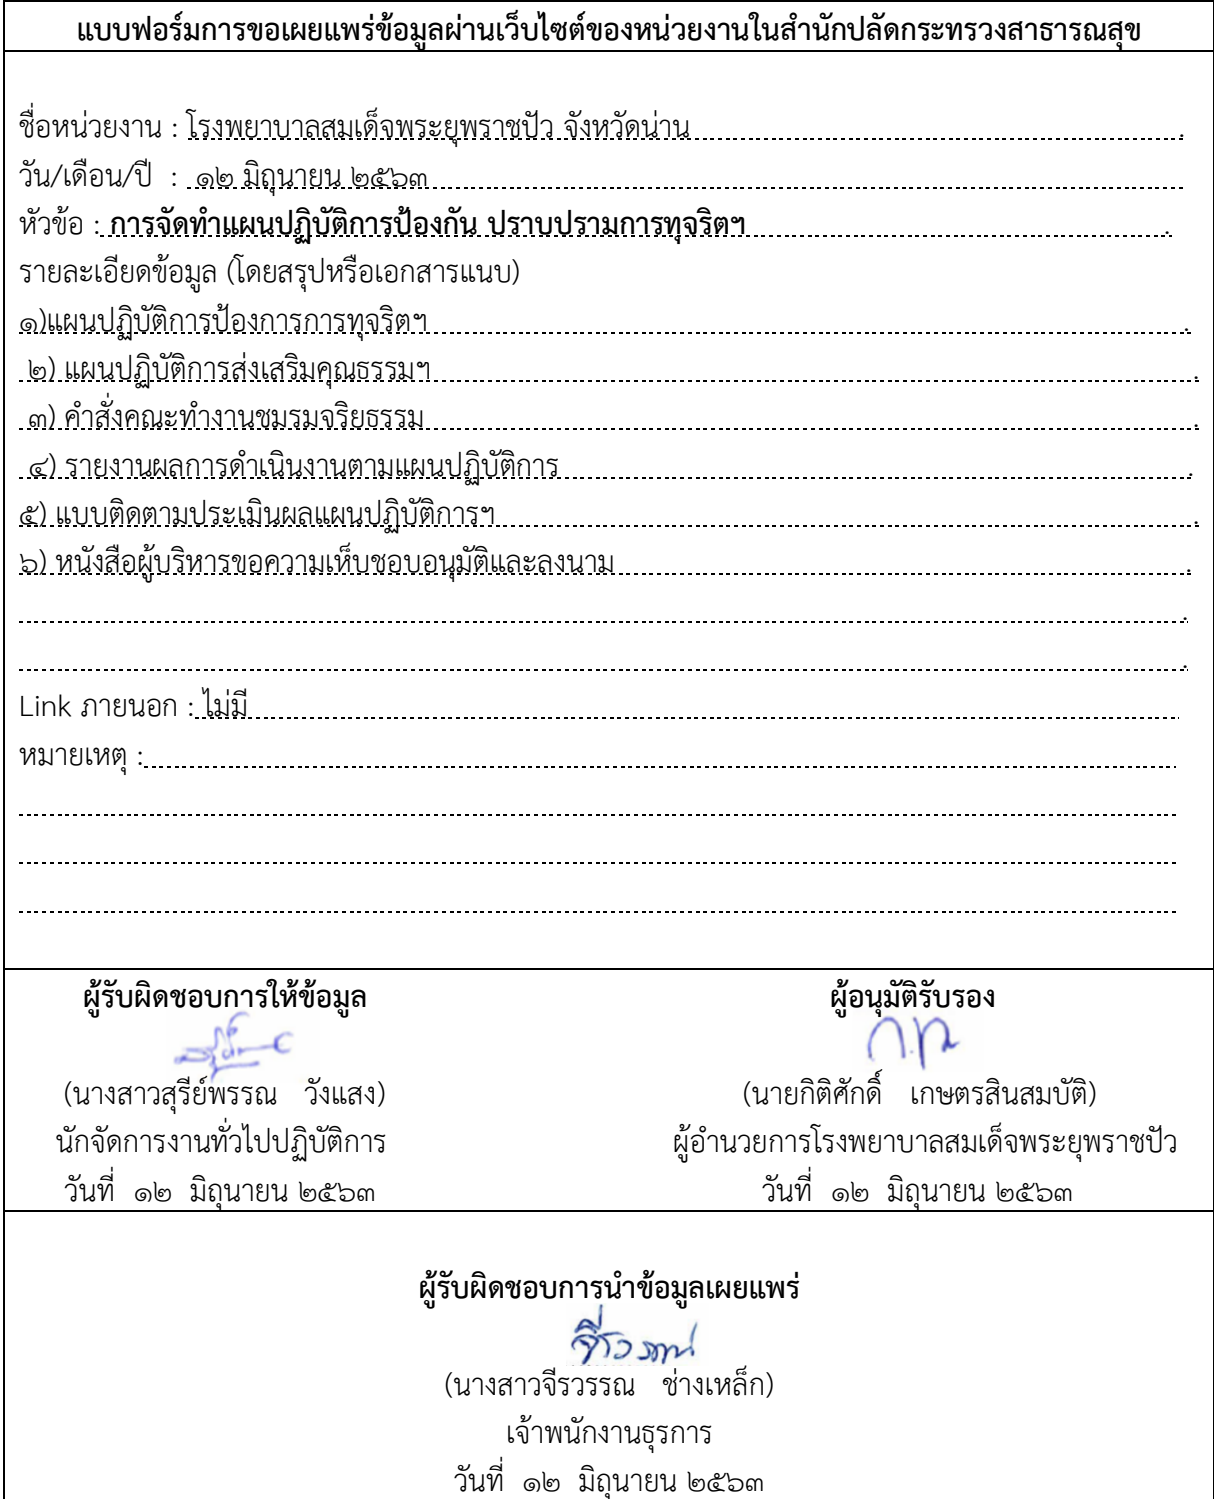 แบบฟอร์มการขอเผยแพร่ข้อมูลผ่านเว็บไซต์ของหน่วยงานในสำนักปลัดกระทรวงสาธารณสุข
ชื่อหน่วยงาน : โรงพยาบาลสมเด็จพระยุพราชปัว จังหวัดน่าน
วัน/เดือน/ปี : ๑๒ มิถุนายน ๒๕๖๓
หัวข้อ : การจัดทำแผนปฏิบัติการป้องกัน ปราบปรามการทุจริตฯ
รายละเอียดข้อมูล (โดยสรุปหรือเอกสารแนบ)
๑)แผนปฏิบัติการป้องการการทุจริตฯ
๒) แผนปฏิบัติการส่งเสริมคุณธรรมฯ
๓) คำสั่งคณะทำงานชมรมจริยธรรม
๔) รายงานผลการดำเนินงานตามแผนปฏิบัติการ
๕) แบบติดตามประเมินผลแผนปฏิบัติการฯ
๖) หนังสือผู้บริหารขอความเห็บชอบอนุมัติและลงนาม
Link ภายนอก : ไม่มี
หมายเหตุ :
ผู้รับผิดชอบการให้ข้อมูล ผู้อนุมัติรับรอง
(นางสาวสุรีย์พรรณ วังแสง) (นายกิติศักดิ์ เกษตรสินสมบัติ)
นักจัดการงานทั่วไปปฏิบัติการ ผู้อำนวยการโรงพยาบาลสมเด็จพระยุพราชปัว
วันที่ ๑๒ มิถุนายน ๒๕๖๓ วันที่ ๑๒ มิถุนายน ๒๕๖๓
ผู้รับผิดชอบการนำข้อมูลเผยแพร่
(นางสาวจีรวรรณ ช่างเหล็ก)
เจ้าพนักงานธุรการ
วันที่ ๑๒ มิถุนายน ๒๕๖๓